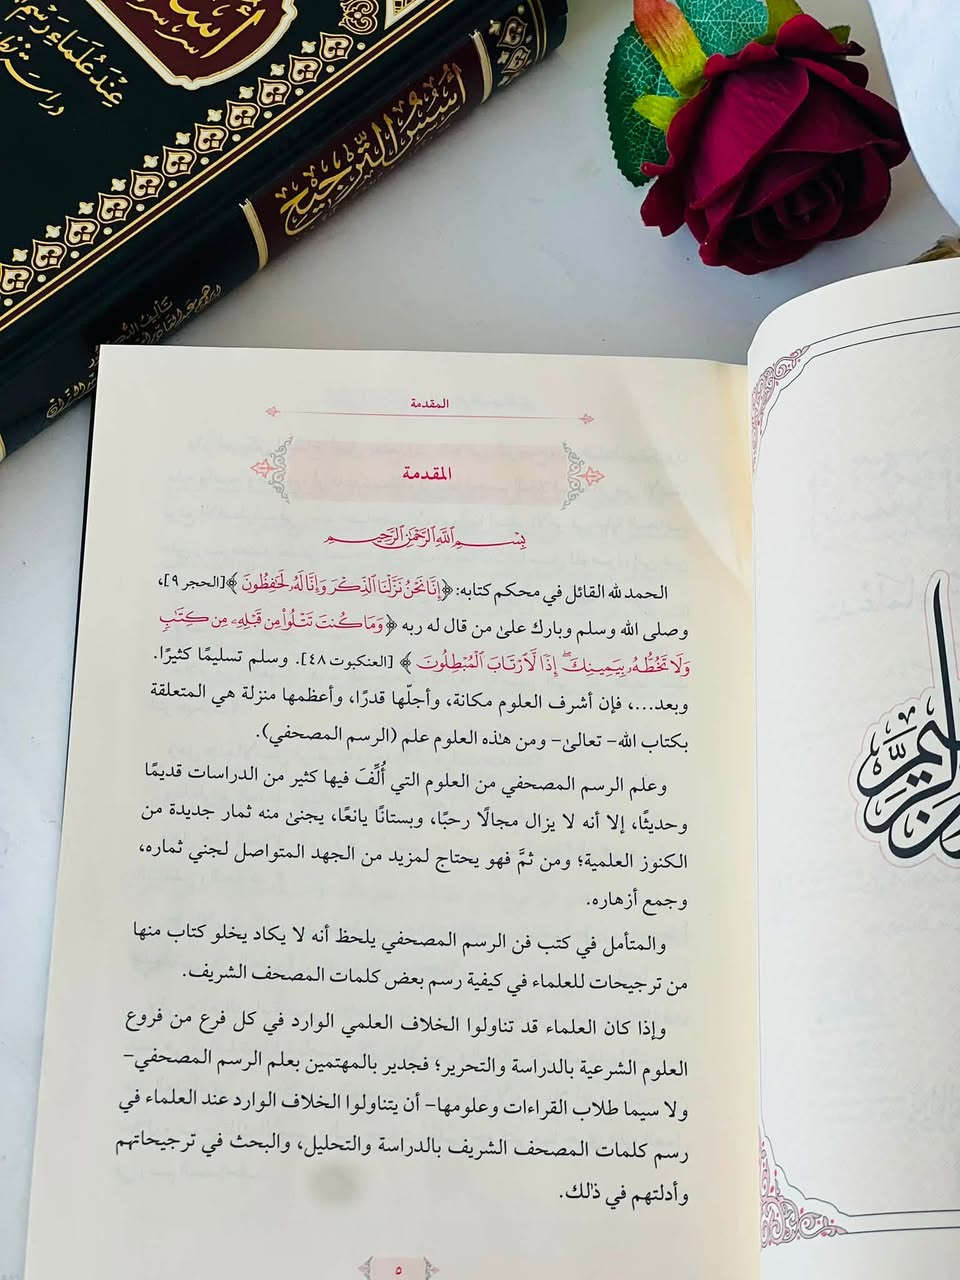 عِنْدَ عُلَمَاءِ رَسْمِ
أُسُسُ التَّرْجِيحِ
تأليف
المقدمة
المقدمة
بِسْمِ ٱللَّهِ ٱلرَّحْمَٰنِ ٱلرَّحِيمِ
الحمد لله القائل في محكم كتابه: ﴿إِنَّا نَحْنُ نَزَّلْنَا ٱلذِّكْرَ وَإِنَّا لَهُۥ لَحَٰفِظُونَ﴾ [الحجر ٩]،
وصلى الله وسلم وبارك علىٰ من قال له ربه ﴿وَمَا كُنتَ تَتْلُوا۟ مِن قَبْلِهِۦ مِن كِتَٰبٍ
وَلَا تَخُطُّهُۥ بِيَمِينِكَ ۖ إِذًا لَّٱرْتَابَ ٱلْمُبْطِلُونَ﴾ [العنكبوت ٤٨]. وسلم تسليمًا كثيرًا.
وبعد...، فإن أشرف العلوم مكانة، وأجلّها قدرًا، وأعظمها منزلة هي المتعلقة
بكتاب الله- تعالىٰ- ومن هٰذه العلوم علم (الرسم المصحفي).
وعلم الرسم المصحفي من العلوم التي أُلِّفَ فيها كثير من الدراسات قديمًا
وحديثًا، إلا أنه لا يزال مجالًا رحبًا، وبستانًا يانعًا، يجنىٰ منه ثمار جديدة من
الكنوز العلمية؛ ومن ثمَّ فهو يحتاج لمزيد من الجهد المتواصل لجني ثماره،
وجمع أزهاره.
والمتأمل في كتب فن الرسم المصحفي يلحظ أنه لا يكاد يخلو كتاب منها
من ترجيحات للعلماء في كيفية رسم بعض كلمات المصحف الشريف.
وإذا كان العلماء قد تناولوا الخلاف العلمي الوارد في كل فرع من فروع
العلوم الشرعية بالدراسة والتحرير؛ فجدير بالمهتمين بعلم الرسم المصحفي-
ولا سيما طلاب القراءات وعلومها- أن يتناولوا الخلاف الوارد عند العلماء في
رسم كلمات المصحف الشريف بالدراسة والتحليل، والبحث في ترجيحاتهم
وأدلتهم في ذٰلك.
٥